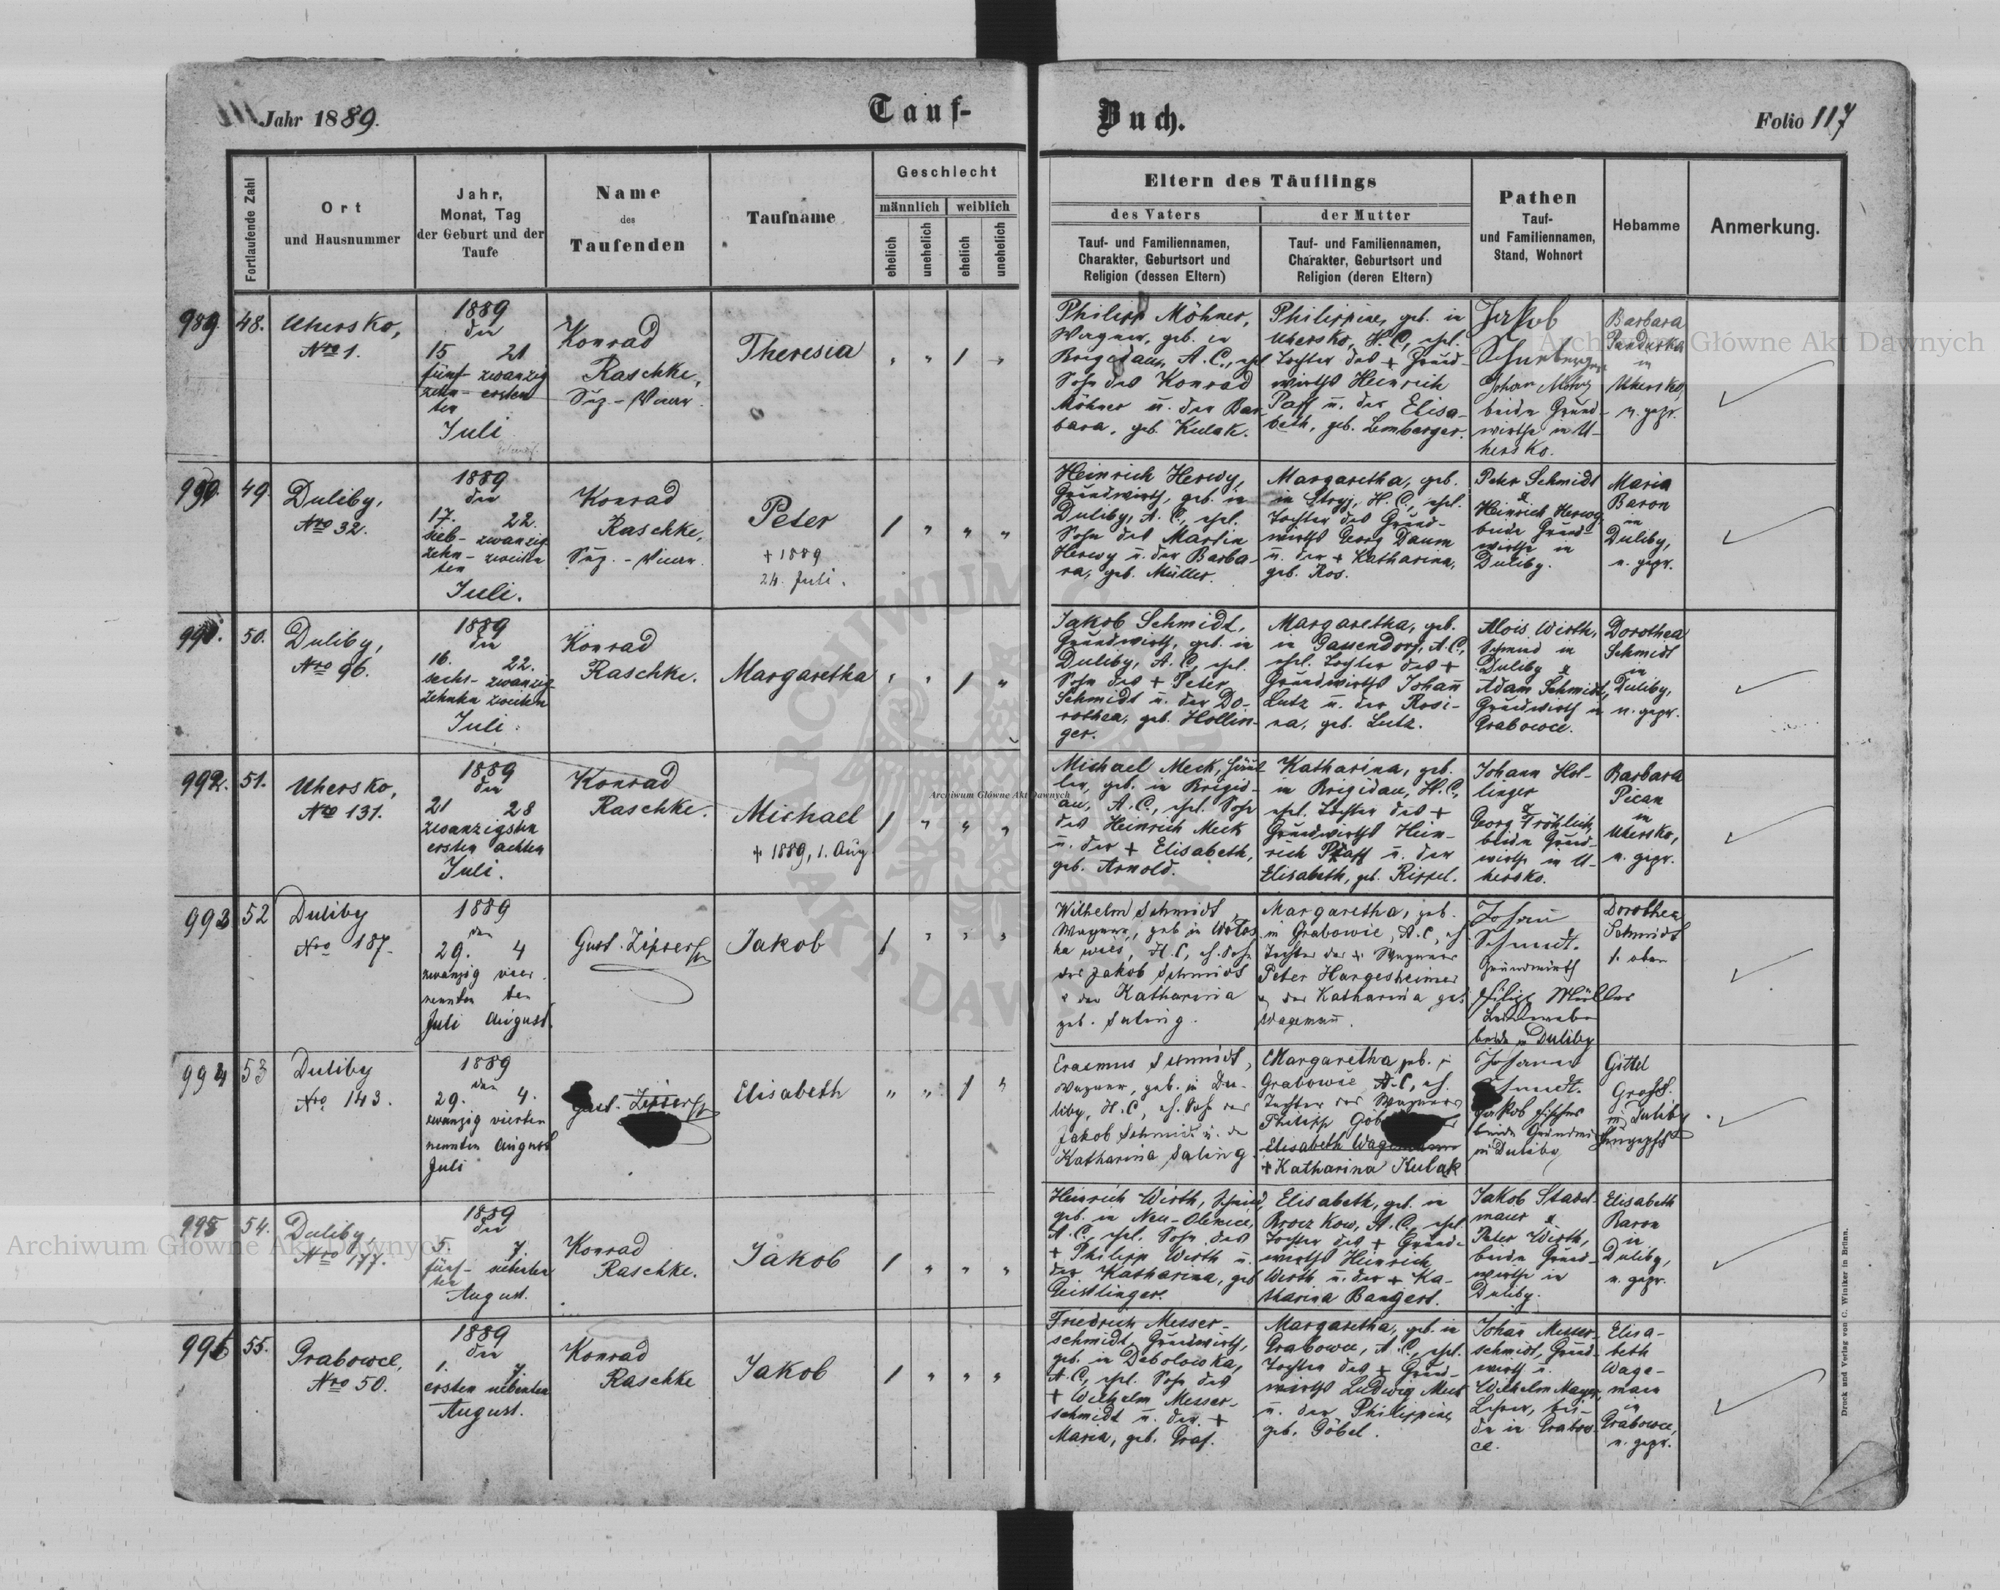 Jahr 1889.
Tauf-
Buch.
Folio 117
Fortlaufende Zahl
Ort
und Hausnummer
Jahr,
Monat, Tag
der Geburt und der
Taufe
Name
des
Taufenden
Taufname
Geschlecht
männlich
weiblich
ehelich
unehelich
ehelich
unehelich
Eltern des Täuflings
des Vaters
der Mutter
Tauf- und Familiennamen,
Charakter, Geburtsort und
Religion (dessen Eltern)
Tauf- und Familiennamen,
Charakter, Geburtsort und
Religion (deren Eltern)
Pathen
Tauf-
und Familiennamen,
Stand, Wohnort
Hebamme
Anmerkung.
989
48.
Uhersko,
Nro 1.
1889
den
15 21
fünf- zwanzig
zehn- ersten
ten
Juli
Konrad
Raschke,
Theresia
" " 1 "
Philipp Möhner,
Wagner, geb. in
Brigidau, A.C., ehl.
Sohn des Konrad
Möhner u. der Bar-
bara, geb. Kulak.
Philippine, geb. in
Uhersko, H.C., ehl.
Tochter des + Grund-
wirths Heinrich
Paff u. der Elisa-
beth, geb. Lemberger.
Jakob
beide Grund-
wirthe in U-
hersko.
Barbara
in
Uhersko,
n. gepr.
990.
49.
Duliby,
Nro 32.
1889
den
17. 22.
sieb- zwanzig
zehn- zweiten
ten
Juli.
Konrad
Raschke,
Peter
+ 1889
24. Juli.
1 " " "
Heinrich Herwy,
Grundwirth, geb. in
Duliby, A.C., ehl.
Sohn des Martin
Herwy u. der Barba-
ra, geb. Müller.
Margaretha, geb.
in Stryj, H.C., ehl.
Tochter des Grund-
wirths Georg Daum
u. der + Katharina,
geb. Ros.
Peter Schmidt
&
Heinrich Herwy,
beide Grund-
wirthe in
Duliby.
Maria
Baron
in
Duliby,
n. gepr.
991.
50.
Duliby,
Nro 96.
1889
den
16. 22.
sechs- zwanzig
zehnten zweiten
Juli.
Konrad
Raschke.
Margaretha
" " 1 "
Jakob Schmidt,
Grundwirth, geb. in
Duliby, A.C., ehl.
Sohn des + Peter
Schmidt u. der Do-
rothea, geb. Hollin-
ger.
Margaretha, geb.
in Gassendorf, A.C.,
ehl. Tochter des +
Grundwirths Johann
Lutz u. der Rosi-
na, geb. Lutz.
Alois Wirth,
Schmied in
Duliby &
Adam Schmidt,
Grundwirth in
Grabowce.
Dorothea
Schmidt
in
Duliby,
n. gepr.
992.
51.
Uhersko,
Nro 131.
1889
den
21 28
zwanzigsten
ersten achten
Juli.
Konrad
Raschke.
Michael
+ 1889, 1. Aug
1 " " "
Michael Meck,
geb. in Brigid-
au, A.C., ehl. Sohn
des Heinrich Meck
u. der + Elisabeth,
geb. Arnold.
Katharina, geb.
in Brigidau, H.C.,
ehl. Tochter des +
Grundwirths Hein-
rich Pfaff u. der
Elisabeth, geb. Rippel.
Johann Hol-
linger
&
Georg Fröhlich,
beide Grund-
wirthe in U-
hersko.
Barbara
Pican
in
Uhersko,
n. gepr.
993
52
Duliby
Nro 187.
1889
den
29. 4
zwanzig vier
neunten ten
Juli August.
Gust. Zipser
Jakob
1 " " "
Wilhelm Schmidt,
Wagner, geb in
H.C, eh. Sohn
des Jakob Schmidt
u der Katharina
geb. Saling.
Margaretha, geb.
in Grabowie, A.C, eh
Tochter des + Wagners
Peter Hargesheimer
u der Katharina geb
Wagemann.
Johann
Schmidt.
Grundwirth
Philipp Müller
beide in Duliby
Dorothea
Schmidt
s. oben
994
53
Duliby
Nro 143.
1889
den
29. 4.
zwanzig vierten
neunten August
Juli
Gust. Zipser
Elisabeth
" " 1 "
Erasmus Schmidt,
Wagner, geb. in Du-
liby, H.C, eh. Sohn des
Jakob Schmidt u. der
Katharina Saling.
Margaretha geb. in
Grabowie A.C, eh.
Tochter des Wagners
Philipp
Elisabeth
+ Katharina Kulak
Johann
Schmidt.
Jakob
beide
in Duliby
Gittel
Gross.
in Duliby
995
54.
Duliby,
Nro 177.
1889
den
5. 7.
fünf- siebenten
ten
August.
Konrad
Raschke.
Jakob
1 " " "
Heinrich Wirth, Schmied,
geb. in Neu-Oleksice,
A.C., ehl. Sohn des
+ Philipp Wirth u.
der Katharina, geb
Geistlinger.
Elisabeth, geb. in
A.C., ehl.
Tochter des + Grund-
wirths Heinrich
Wirth u. der + Ka-
tharina Bangert.
Jakob Stadel-
maier &
Peter Wirth,
beide Grund-
wirthe in
Duliby.
Elisabeth
Baron
in
Duliby,
n. gepr.
996
55.
Grabowce,
Nro 50.
1889
den
1. 7.
ersten siebenten
August.
Konrad
Raschke
Jakob
1 " " "
Friedrich Messer-
schmidt, Grundwirth,
geb. in Dobolowka,
A.C., ehl. Sohn des
+ Wilhelm Messer-
schmidt u. der +
Maria, geb. Graf.
Margaretha, geb. in
Grabowce, A.C., ehl.
Tochter des + Grund-
wirths Ludwig
u. der Philippine,
geb. Göbel.
Johann Messer-
schmidt, Grund-
wirth u.
Wilhelm Mayer,
Lehrer, bei-
de in Grabow-
ce.
Elisa-
beth
Wage-
mann
in
Grabowce,
n. gepr.
Druck und Verlag von C. Winiker in Brünn.
Archiwum Główne Akt Dawnych
Archiwum Główne Akt Dawnych
Archiwum Główne Akt Dawnych
ARCHIWUM GŁÓWNE
AKT DAWNYCH